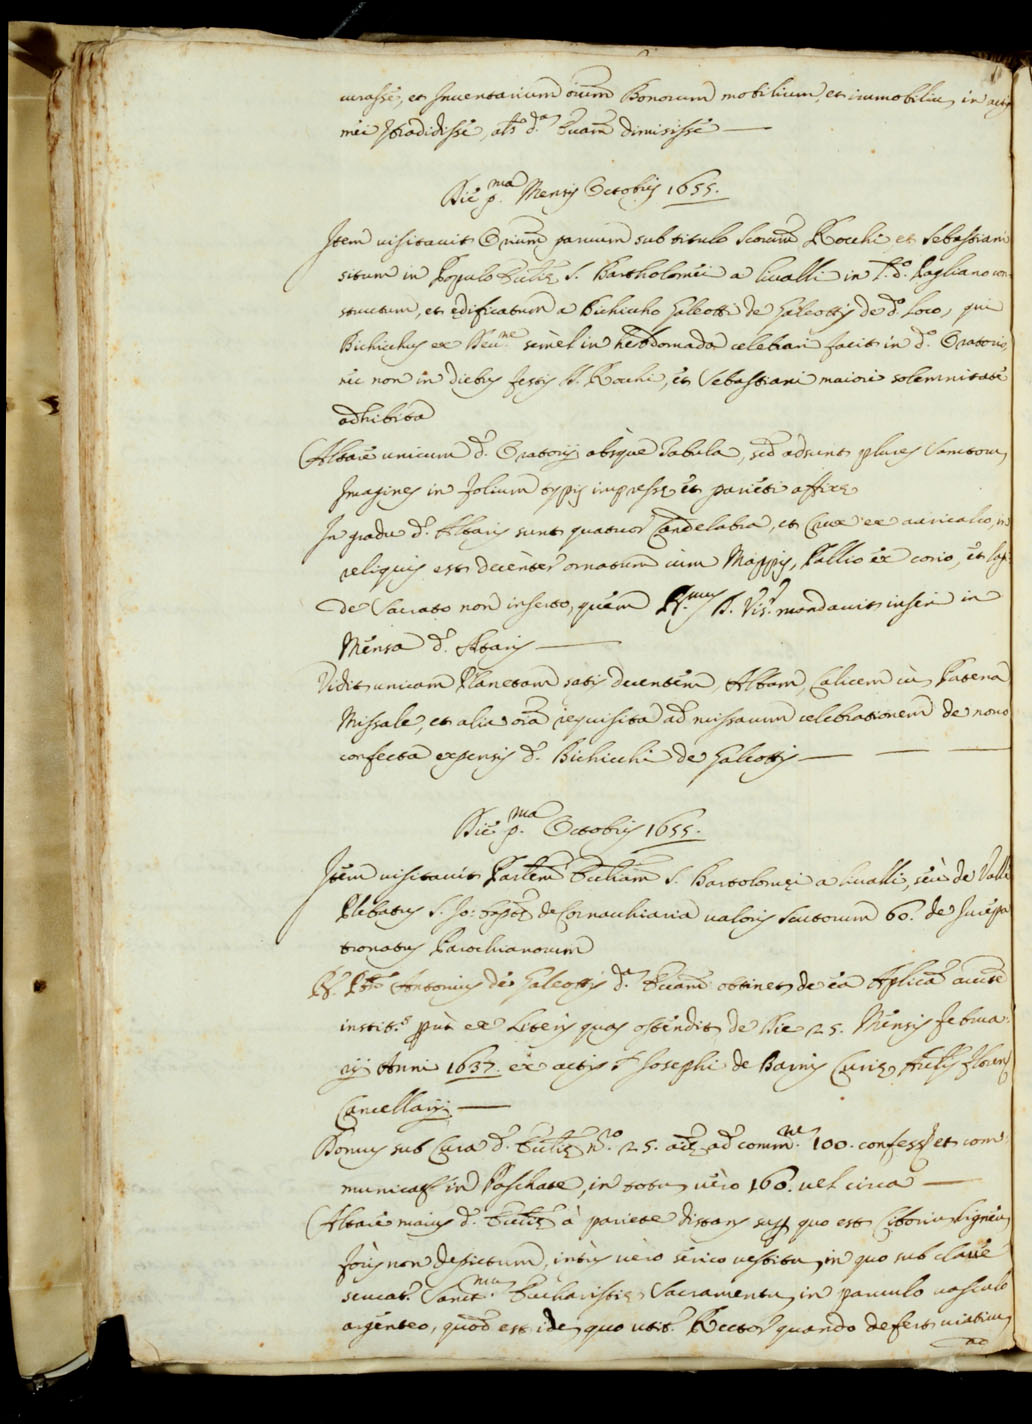 curasse, et Inventarium oium Bonorum mobilium, et immobiliu, in actis
mei tradidisse, als d.ª Ecciam dimisisse —
Die p.ma Mensis Octobris 1655.
Item visitavit Orium parvum sub titulo Scorum Rocchi et Sebastiani
situm in Populo Eccliæ S. Bartholomei a livalli in l.º d.º Pagliano con-
structum, et edificatum a Bichiccho Galeotti de Galeottis de d.º loco, qui
Bichicchus ex Devne semel in hebdomada celebrari facit in d.º Oratorio,
nec non in diebus festis S. Rocchi, et Sebastiani maiori solemnitate
adhibita
Altare unicum d.i Oratorij absque Tabula, sed adsunt plures Sanctorum
Imagines in folium typis impresse et parieti affixe
In gradu d.i Altaris sunt quatuor Candelabra, et Crux ex auricalco, in
reliquis est decenter ornatum cum Mappis, Pallio ex corio, et lapi-
de Sacrato non inserto, quem R.mus D. Vis.r mandavit inseri in
Mensa d.i Altaris —
Vidit unicam Planetam satis decentem, Albam, Calicem cu Patena
Missale, et alia oia requisita ad missarum celebrationem de novo
confecta expensis d.i Bichicchi de Galeottis — — —
Die p.ma Octobris 1655.
Item visitavit Parlem Eccliam S. Bartolomei a livalli, seu de Valle
Plebatus S. Jo: Bapte de Cornacchiaria valoris Scutorum 60. de Jurepa-
tronatus Parochianorum
R. Pbr Antonius de Galeottis d.ª Ecciam obtinet de ea Aplica aucte
instit.s prùt ex Literis quas ostendit de Die 25. Mensis Februa-
rij Anni 1637. ex actis Josephi de Barnis Curiæ Archlis Floren
Cancellarij —
Domus sub Cura d.e Eccliæ n.º 25. aiæ ad comm.ne 100. confess et com-
municat in Paschate, in totu vero 160. vel circa —
Altare maius d.e Eccliæ à pariete distans sup quo est Ciboriu ligneu
foris non depictum, intus vero serico vestitu, in quo sub clave
servat.r Sanct.mu Eucharistiæ Sacramentu in parvulo vasculo
argenteo, quod est ide quo utit.r Rector quando defert viaticu
ad